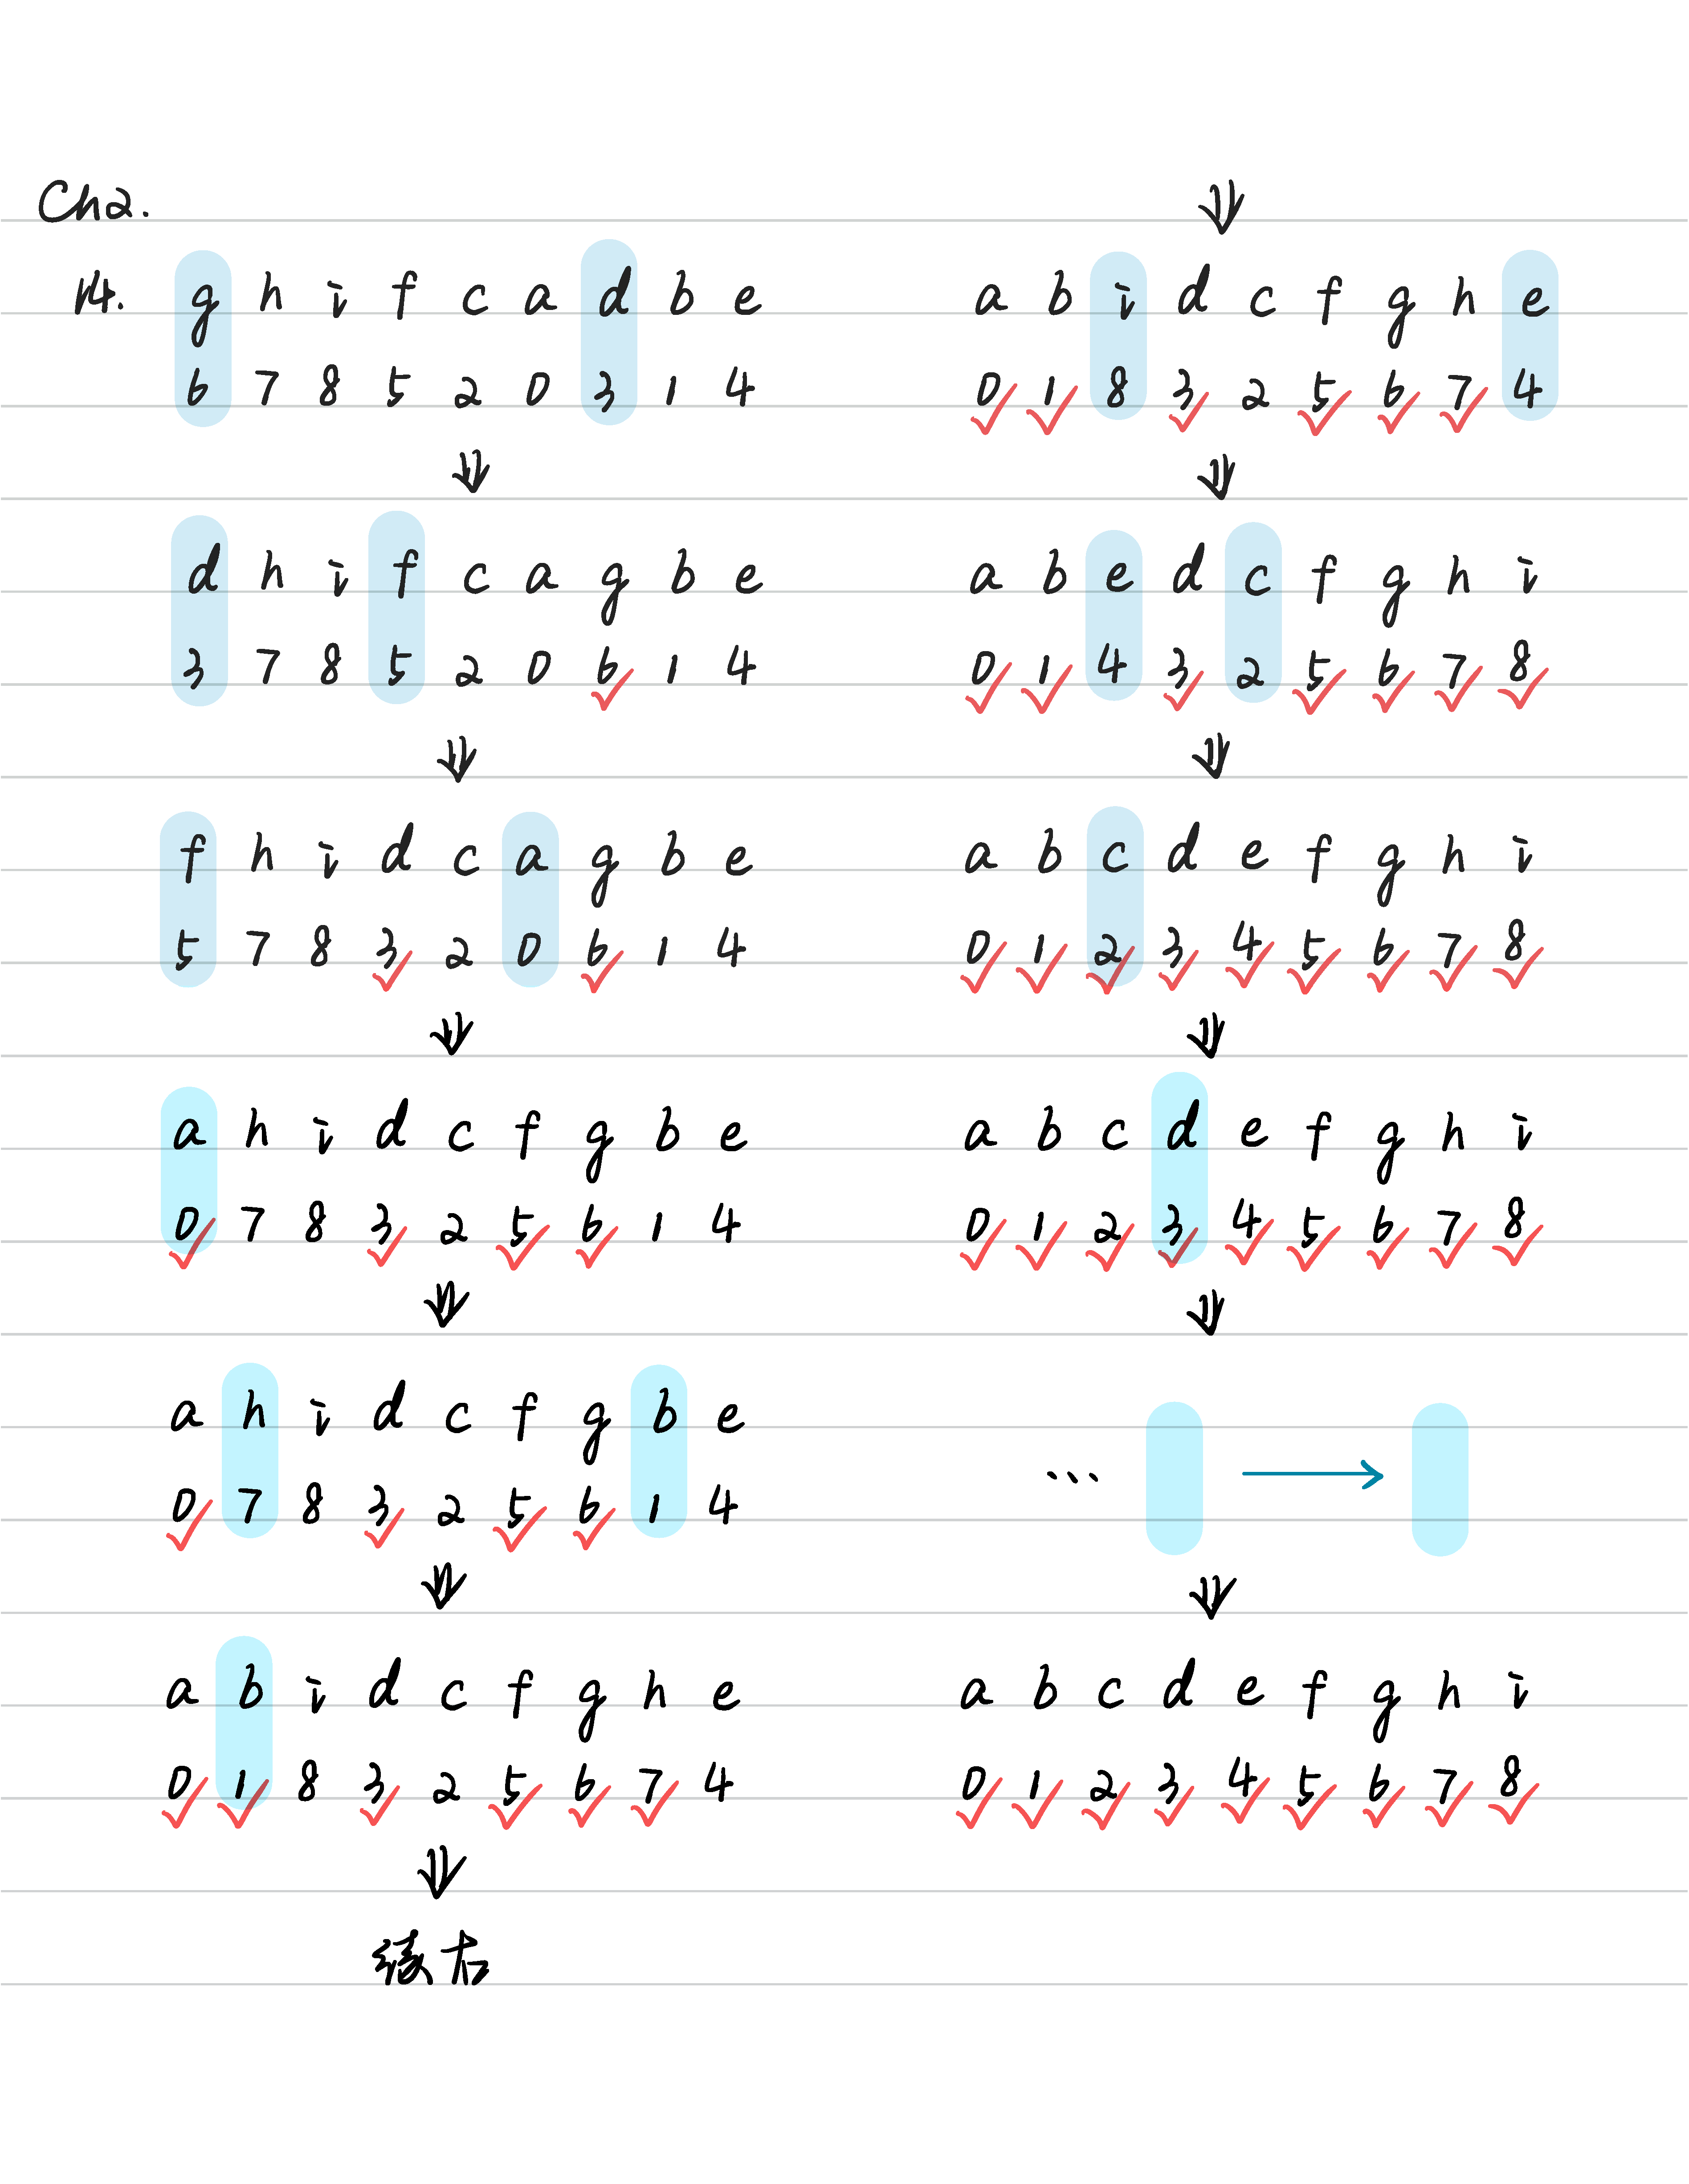 Ch2.
14. g h i f c a d b e
6 7 8 5 2 0 3 1 4
⇓
d h i f c a g b e
3 7 8 5 2 0 6✓ 1 4
⇓
f h i d c a g b e
5 7 8 3✓ 2 0 6✓ 1 4
⇓
a h i d c f g b e
0✓ 7 8 3✓ 2 5✓ 6✓ 1 4
⇓
a h i d c f g b e
0✓ 7 8 3✓ 2 5✓ 6✓ 1 4
⇓
a b i d c f g h e
0✓ 1✓ 8 3✓ 2 5✓ 6✓ 7✓ 4
⇓
續右
⇓
a b i d c f g h e
0✓ 1✓ 8 3✓ 2 5✓ 6✓ 7✓ 4
⇓
a b e d c f g h i
0✓ 1✓ 4 3✓ 2 5✓ 6✓ 7✓ 8✓
⇓
a b c d e f g h i
0✓ 1✓ 2✓ 3✓ 4✓ 5✓ 6✓ 7✓ 8✓
⇓
a b c d e f g h i
0✓ 1✓ 2✓ 3✓ 4✓ 5✓ 6✓ 7✓ 8✓
⇓
... →
⇓
a b c d e f g h i
0✓ 1✓ 2✓ 3✓ 4✓ 5✓ 6✓ 7✓ 8✓